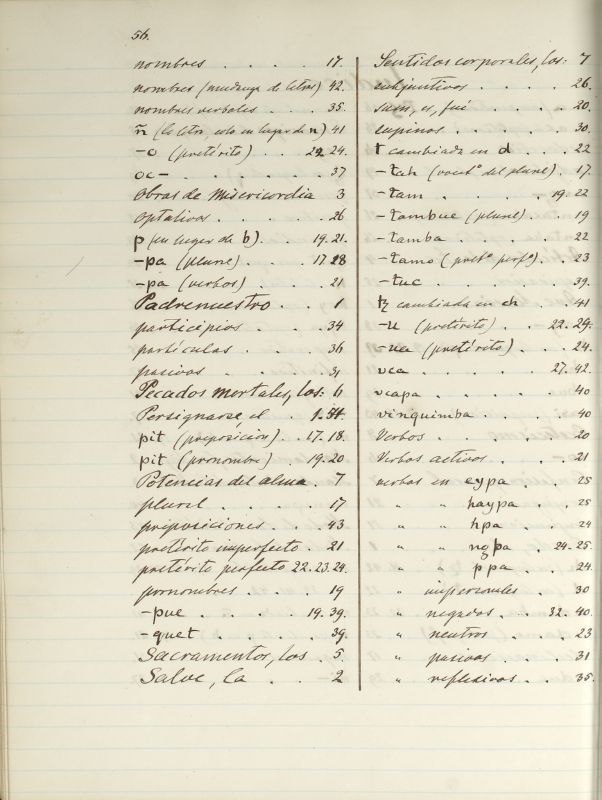 56.
nombres . . . . 17.
nombres (mudança de letras) 42.
nombres verbales . . . 35.
ñ (la letra, solo en lugar de n) 41
-o (pretérito) . . 22 24.
oc- . . . . . . 37
Obras de Misericordia 3
optativos . . . . 26
p (en lugar de b) . . 19. 21.
-pa (plural) . . . 17. 28
-pa (verbos) . . . 21
Padrenuestro . . . 1
participios . . . . 34
partículas . . . . 36
pasivos . . . . 31
Pecados mortales, los. 6
Persignarse el . . 1.
pit (preposición) . 17. 18.
pit (pronombre) . 19. 20
Potencias del alma . 7
plural . . . . 17
preposiciones . . . 43
pretérito imperfecto . 21
pretérito perfecto 22. 23. 24.
pronombres . . . 19
-pue . . . . 19. 39.
-quet . . . . . 39.
Sacramentos, los . 5.
Salve, la . . . 2
Sentidos corporales, los: 7
subjuntivos . . . 26.
sum, es, fuí . . . 20.
supinos . . . . 30.
t cambiada en d . . . 22
-tah (vocat.º del plural) . 17.
-tam . . . . 19. 22
-tambue (plural) . . 19
-tamba . . . . . 22
-tamo (pret.º perf.º) . 23
-tuc . . . . . 39.
tz cambiada en ch . . 41
-u (pretérito) . . 22. 24.
-ua (pretérito) . . . 24.
uca . . . . 27. 42.
ucapa . . . . . 40
vinquimba . . . . 40
Verbos . . . . 20
Verbos activos . . . 21
verbos en eypa . . 25
" " haypa . . 25
" " hpa . . 24
" " ngpa . 24. 25.
" " ppa . . 24.
" impersonales . . 30
" negados . . 32. 40.
" neutros . . . 23
" pasivos . . . 31
" reflexivos . . 35.